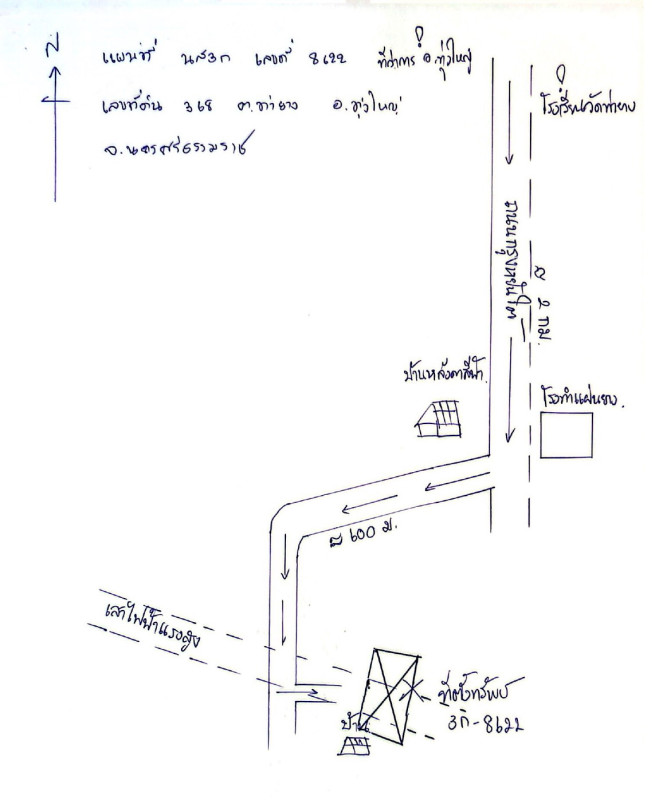 N
แผนที่ นส3ก เลขที่ 8622 ที่ว่าการ อ.ทุ่งใหญ่
เลขที่ดิน 368 ต.ท่ายาง อ.ทุ่งใหญ่
จ.นครศรีธรรมราช
โรงเรียนวัดท่ายาง
ถนนทุ่งใหญ่
2 กม.
บ้านหลังคาสีฟ้า
โรงทำแผ่นยาง
600 ม.
เสาไฟฟ้าแรงสูง
ที่ตั้งทรัพย์
3ก-8622
บ้าน